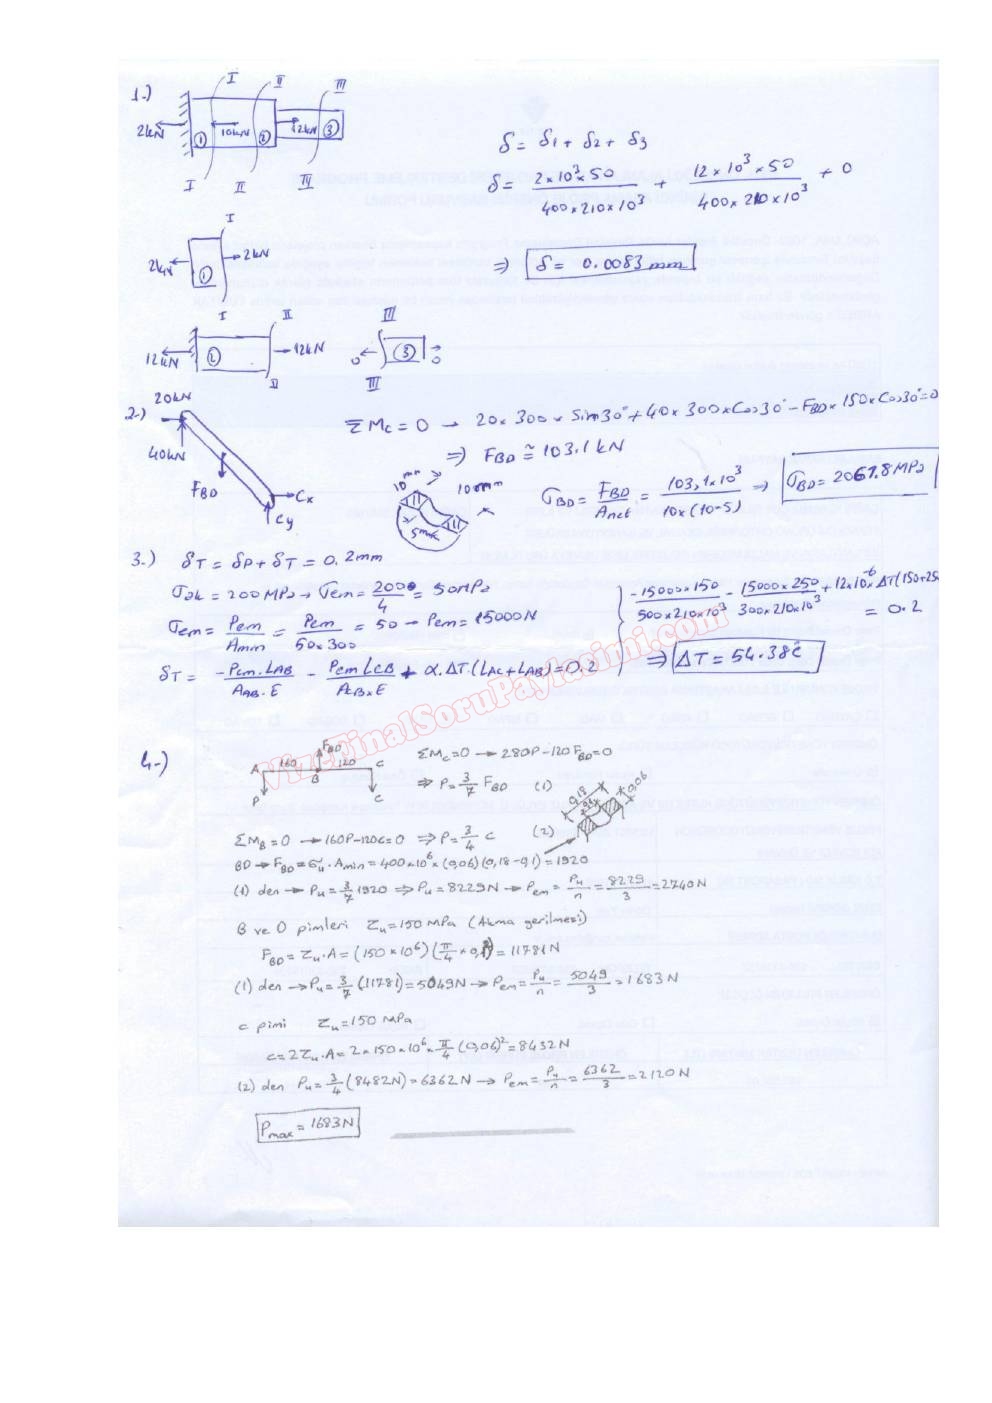 1-)
I
II
III
2kN
①
10kN
②
12kN
③
I
II
III
δ = δ1 + δ2 + δ3
δ = 2×10³×50 / 400×210×10³ + 12×10³×50 / 400×210×10³ + 0
⇒ δ = 0.0083 mm
I
2kN
①
2kN
I
II
III
12kN
②
12kN
0
③
0
II
III
2-)
20kN
40kN
FBD
Cx
Cy
ΣMc = 0 → 20×300×Sin30° + 40×300×Cos30° − FBD×150×Cos30° = 0
⇒ FBD ≅ 103.1 kN
10mm
10mm
5mm
σBD = FBD / Anet = 103,1×10³ / 10×(10-5) ⇒ σBD = 2061.8 MPa
3-) δT = δP + δT = 0.2mm
σak = 200 MPa → σem = 200 / 4 = 50MPa
σem = Pem / Amin = Pem / 50×300 = 50 → Pem = 15000N
δT = −Pem.LAB / AAB.E − Pem LCB / ACB×E + α.ΔT.(LAC+LAB) = 0.2
−15000×150 / 500×210×10³ − 15000×250 / 300×210×10³ + 12×10⁻⁶×ΔT(150+25
= 0.2
⇒ ΔT = 54.38°C
VizeFinalSoruPaylasimi.com
4-)
FBD
A 160 120 C
B
P
C
ΣMc=0 → 280P−120FBD=0
⇒ P = 3/7 FBD (1)
0,18
0,06
ΣMB = 0 → 160P−120C=0 ⇒ P = 3/4 C (2)
BD → FBD = σu . Amin = 400×10⁶×(0,06)(0,18−0,1) = 1920
(1) den → Pu = 3/7 1920 ⇒ Pu = 8229N → Pem = Pu/n = 8229/3 = 2740N
B ve D pimleri τu = 150 MPa (Akma gerilmesi)
FBD = τu.A = (150×10⁶)(π/4 × 0,1²) = 11781N
(1) den → Pu = 3/7 (11781) = 5049N → Pem = Pu/n = 5049/3 = 1683N
c pimi τu = 150 MPa
C = 2τu.A = 2×150×10⁶×π/4 (0,06)² = 8432N
(2) den Pu = 3/4 (8482N) = 6362N → Pem = Pu/n = 6362/3 = 2120N
Pmax = 1683N